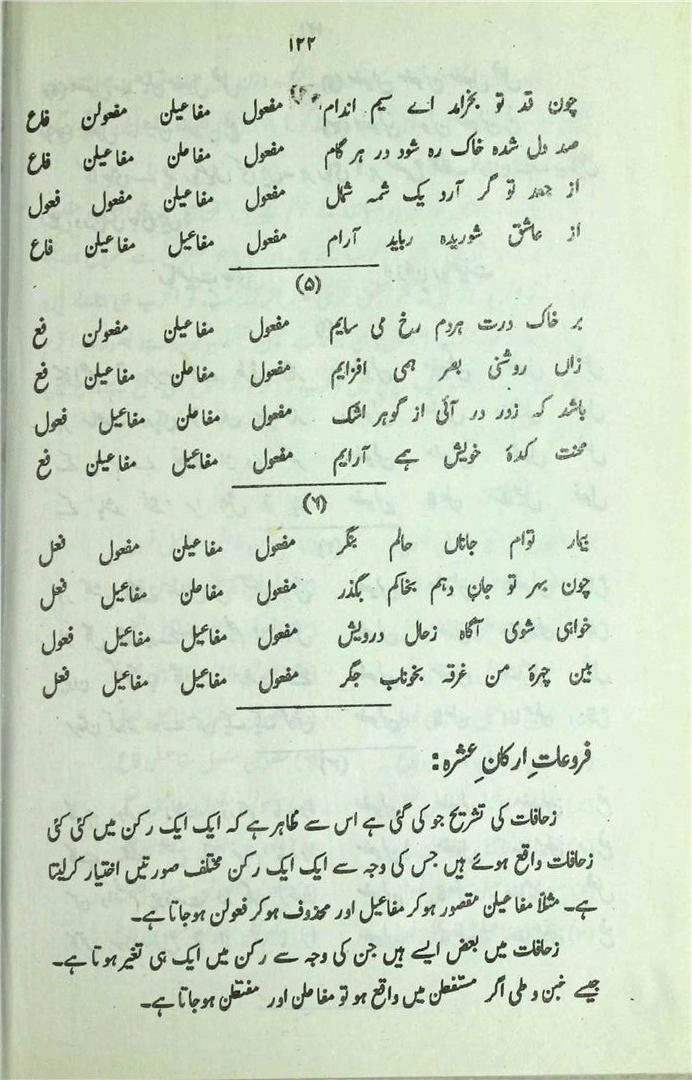 ۱۲۲
چون قد تو بخرامد اے سیم اندام مفعول مفاعیلن مفعولن فاع
صد دل شدہ خاک رہ شود در ہر گام مفعول مفاعلن مفاعیلن فاع
از جعد تو گر آرد یک شمہ شمال مفعول مفاعیلن مفعول فعول
از عاشق شوریدہ رباید آرام مفعول مفاعیل مفاعیلن فاع
(۵)
بر خاک درت ہردم رخ می سایم مفعول مفاعیلن مفعولن فع
زاں روشنی بصر ہمی افزایم مفعول مفاعلن مفاعیلن فع
باشد کہ زدور در آئی از گوہر اشک مفعول مفاعلن مفاعیل فعول
محنت کدۂ خویش ہے آرایم مفعول مفاعیل مفاعیلن فع
(۶)
بیمار توام جاناں حالم بنگر مفعول مفاعیلن مفعول فعل
چون بہر تو جان دہم بخاکم بگذر مفعول مفاعلن مفاعیل فعل
خواہی شوی آگاہ زحال درویش مفعول مفاعیل مفاعیل فعول
بین چہرۂ من غرقہ بخوناب جگر مفعول مفاعیل مفاعیل فعل
فروعاتِ ارکانِ عشرہ:
زحافات کی تشریح جو کی گئی ہے اس سے ظاہر ہے کہ ایک ایک رکن میں کئی کئی
زحافات واقع ہوئے ہیں جس کی وجہ سے ایک ایک رکن مختلف صورتیں اختیار کرلیتا
ہے۔ مثلاً مفاعیلن مقصور ہوکر مفاعیل اور محذوف ہوکر فعولن ہوجاتا ہے۔
زحافات میں بعض ایسے ہیں جن کی وجہ سے رکن میں ایک ہی تغیر ہوتا ہے۔
جیسے خبن و طی اگر مستفعلن میں واقع ہو تو مفاعلن اور مفتعلن ہوجاتا ہے۔